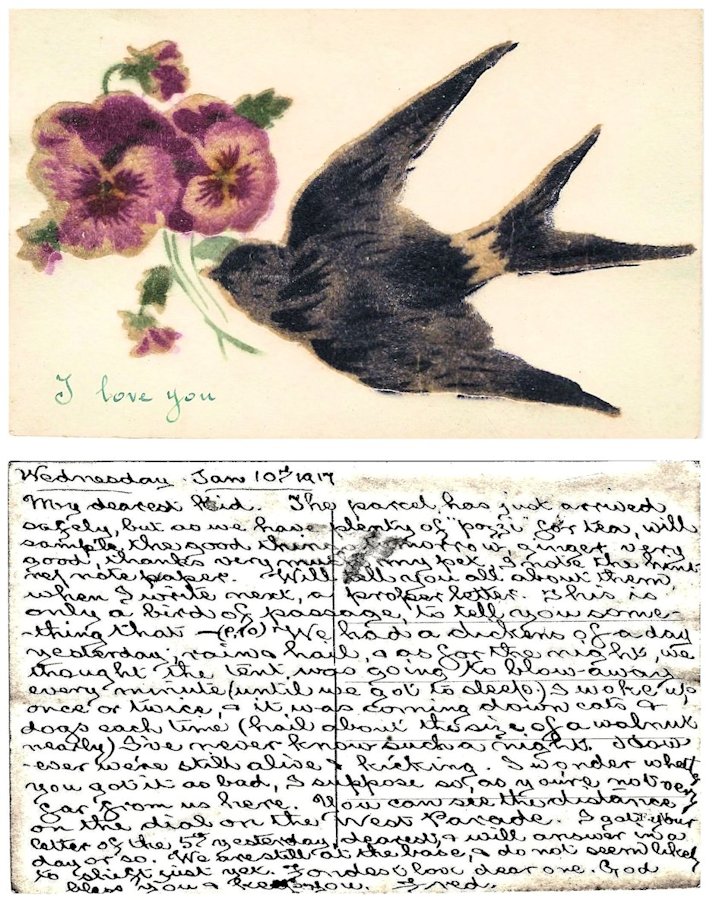 I love you
Wednesday. Jan 10th 1917
My dearest Kid. The parcel has just arrived
safely, but as we have plenty of "pozzi" for tea, will
sample the good things morrow, ginger very
good, thanks very much my pet. I note the
note paper. Will tell you all about them,
when I write next, a proper letter. This is
only a bird of passage, to tell you some-
-thing that - (P.T.O) We had a dickens of a day
yesterday; rains hail, & as for the night, we
thought the tent was going to blow away
every minute (until we got to sleep) I woke up
once or twice, & it was coming down cats &
dogs each time (hail about the size of a walnut
nearly) I've never know such a night. How
-ever we're still alive & kicking. I wonder whether
you got it as bad, I suppose so, as you're not very
far from us here. You can see the distance
on the dial on the West Parade. I got your
letter of the 5th yesterday, dearest, & will answer in a
day or so. We are still at the base, & do not seem likely
to shift just yet. Fondest love dear one. God
bless you & keep you. Fred.